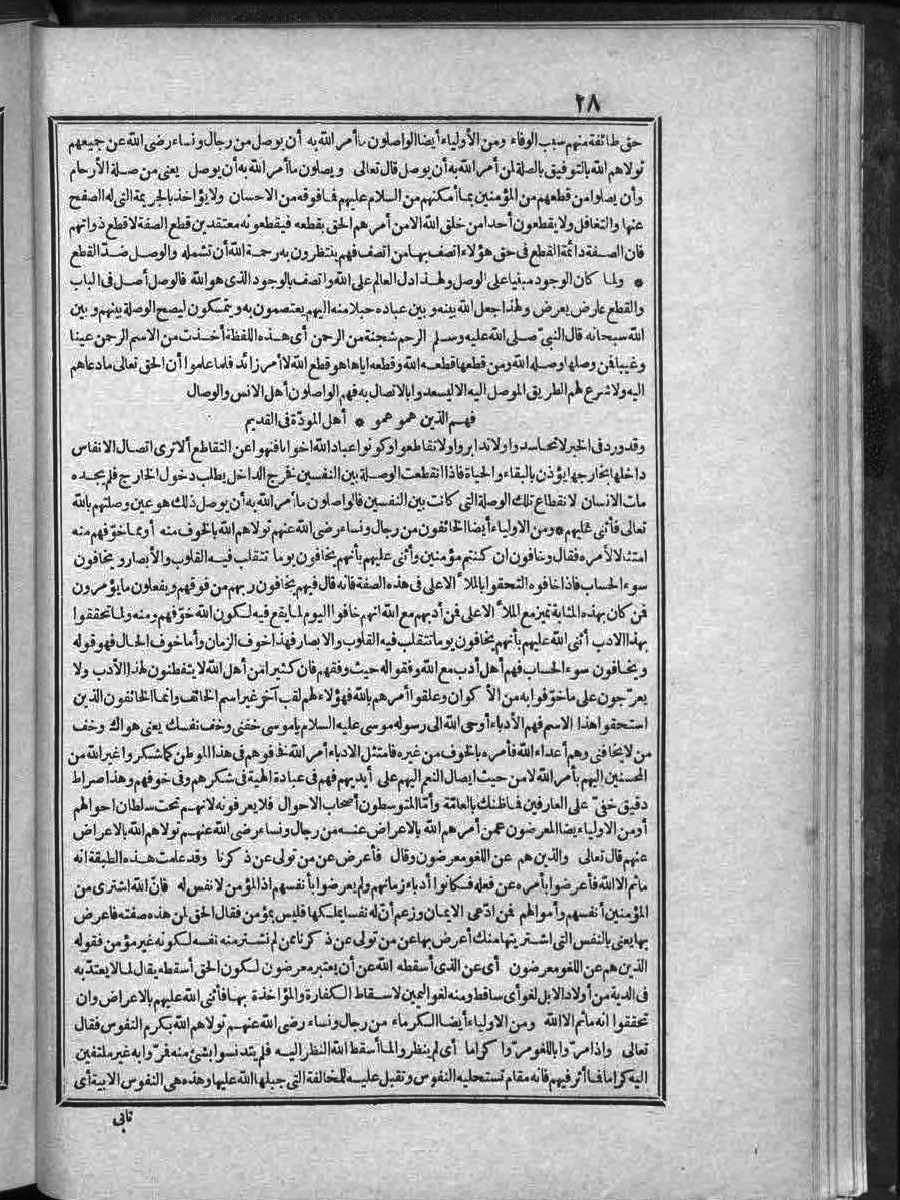 ٢٨
حق طائفة منهم بسبب الوفاء ومن الأولياء أيضا الواصلون ما أمر الله به أن يوصل من رجال ونساء رضى الله عن جميعهم
تولاهم الله بالتوفيق بالصلة لمن أمر الله به أن يوصل قال تعالى ويصلون ما أمر الله به أن يوصل يعنى من صلة الأرحام
وأن يصلوا من قطعهم من المؤمنين بما أمكنهم من السلام عليهم فما فوقه من الاحسان ولا يؤاخذ بالجريمة التى له الصفح
عنها والتغافل ولا يقطعون أحدا من خلق الله الا من أمرهم الحق بقطعه فيقطعونه معتقدين قطع الصفة لا قطع ذواتهم
فان الصفة دائمة القطع فى حق هؤلاء اتصف بها من اتصف فهم ينتظرون به رحمة الله أن تشمله والوصل ضدّ القطع
* ولما كان الوجود مبنيا على الوصل ولهذا دل العالم على الله واتصف بالوجود الذى هو الله فالوصل أصل فى الباب
والقطع عارض يعرض ولهذا جعل الله بينه وبين عباده حبلا منه اليهم يعتصمون به ويتمسكون ليصح الوصلة بينهم وبين
الله سبحانه قال النبىّ صلى الله عليه وسلم الرحم شجنة من الرحمن أى هذه اللفظة أخذت من الاسم الرحمن عينا
وغيبا فمن وصلها وصله الله ومن قطعها قطعه الله وقطعه اياها هو قطع الله لا أمر زائد فلما علموا أن الحق تعالى ما دعاهم
اليه ولا شرع لهم الطريق الموصل اليه الا ليسعدوا بالاتصال به فهم الواصلون أهل الانس والوصال
فهم الذين همو همو * أهل المودّة فى القديم
وقد ورد فى الخبر لا تحاسدوا ولا تدابروا ولا تقاطعوا وكونوا عباد الله اخوانا فنهوا عن التقاطع ألا ترى اتصال الانفاس
داخلها بخارجها يؤذن بالبقاء والحياة فاذا انقطعت الوصلة بين النفسين فخرج الداخل يطلب دخول الخارج فلم يجده
مات الانسان لانقطاع تلك الوصلة التى كانت بين النفسين فالواصلون ما أمر الله به أن يوصل ذلك هو عين وصلتهم بالله
تعالى فأثنى عليهم * ومن الاولياء أيضا الخائفون من رجال ونساء رضى الله عنهم تولاهم الله بالخوف منه أو مما خوّفهم منه
امتثالا لأمره فقال وخافون ان كنتم مؤمنين وأثنى عليهم بأنهم يخافون يوما تتقلب فيه القلوب والأبصار ويخافون
سوء الحساب فاذا خافوه التحقوا بالملأ الاعلى فى هذه الصفة فانه قال فيهم يخافون ربهم من فوقهم ويفعلون ما يؤمرون
فمن كان بهذه المثابة تميز مع الملأ الاعلى فمن أدبهم مع الله انهم خافوا اليوم لما يقع فيه لكون الله خوّفهم ومنه ولما تحققوا
بهذا الادب أثنى الله عليهم بأنهم يخافون يوما تتقلب فيه القلوب والابصار فهذا خوف الزمان وأما خوف الحال فهو قوله
ويخافون سوء الحساب فهم أهل أدب مع الله وقفوا له حيث وقفهم فان كثيرا من أهل الله لا يتفطنون لهذا الأدب ولا
يعرّجون على ما خوّفوا به من الأكوان وعلقوا أمرهم بالله فهؤلاء لهم لقب آخر غير اسم الخائف وانما الخائفون الذين
استحقوا هذا الاسم فهم الأدباء أوحى الله الى رسوله موسى عليه السلام يا موسى خفنى وخف نفسك يعنى هواك وخف
من لا يخافنى وهم أعداء الله فأمره بالخوف من غيره فامتثل الادباء أمر الله فخافوهم فى هذا الموطن كما شكروا غير الله من
المحسنين اليهم بأمر الله لا من حيث ايصال النعم اليهم على أيديهم فهم فى عبادة الهية فى شكرهم وفى خوفهم وهذا صراط
دقيق خفىّ على العارفين فما ظنك بالعامّة وأمّا المتوسطون أصحاب الاحوال فلا يعرفونه لانهم تحت سلطان احوالهم
أومن الاولياء يضا المعرضون عمن أمرهم الله بالاعراض عنه من رجال ونساء رضى الله عنهم تولاهم الله بالاعراض
عنهم قال تعالى والذين هم عن اللغو معرضون وقال فأعرض عن من تولى عن ذكرنا وقد علمت هذه الطبقة انه
ما ثم الا الله فأعرضوا بأمره عن فعله فكانوا أدباء زمانهم ولم يعرضوا بأنفسهم اذ المؤمن لا نفس له فانّ الله اشترى من
المؤمنين أنفسهم وأموالهم فمن ادّعى الايمان وزعم أنّ له نفسا يملكها فليس بمؤمن فقال الحق لمن هذه صفته فاعرض
بها يعنى بالنفس التى اشتريتها منك أعرض بها عن من تولى عن ذكرنا ممن لم نشتر منه نفسه لكونه غير مؤمن فقوله
الذين هم عن اللغو معرضون أى عن الذى أسقطه الله عن أن يعتبر معرضون لكون الحق أسقطه يقال لما لا يعتدّ به
فى الدية من أولاد الابل لغو أى ساقط ومنه لغو اليمين لاسقاط الكفارة والمؤاخذة بها فأثنى الله عليهم بالاعراض وان
تحققوا انه ما ثم الا الله ومن الاولياء أيضا الكرماء من رجال ونساء رضى الله عنهم تولاهم الله بكرم النفوس فقال
تعالى واذا مرّوا باللغو مرّوا كراما أى لم ينظروا لما أسقط الله النظر اليه فلم يتدنسوا بشئ منه فمرّوا به غير ملتفتين
اليه كراما فما أثر فيهم فانه مقام تستحليه النفوس وتقبل عليه للمخالفة التى جبلها الله عليها وهذه هى النفوس الابية أى
تابى